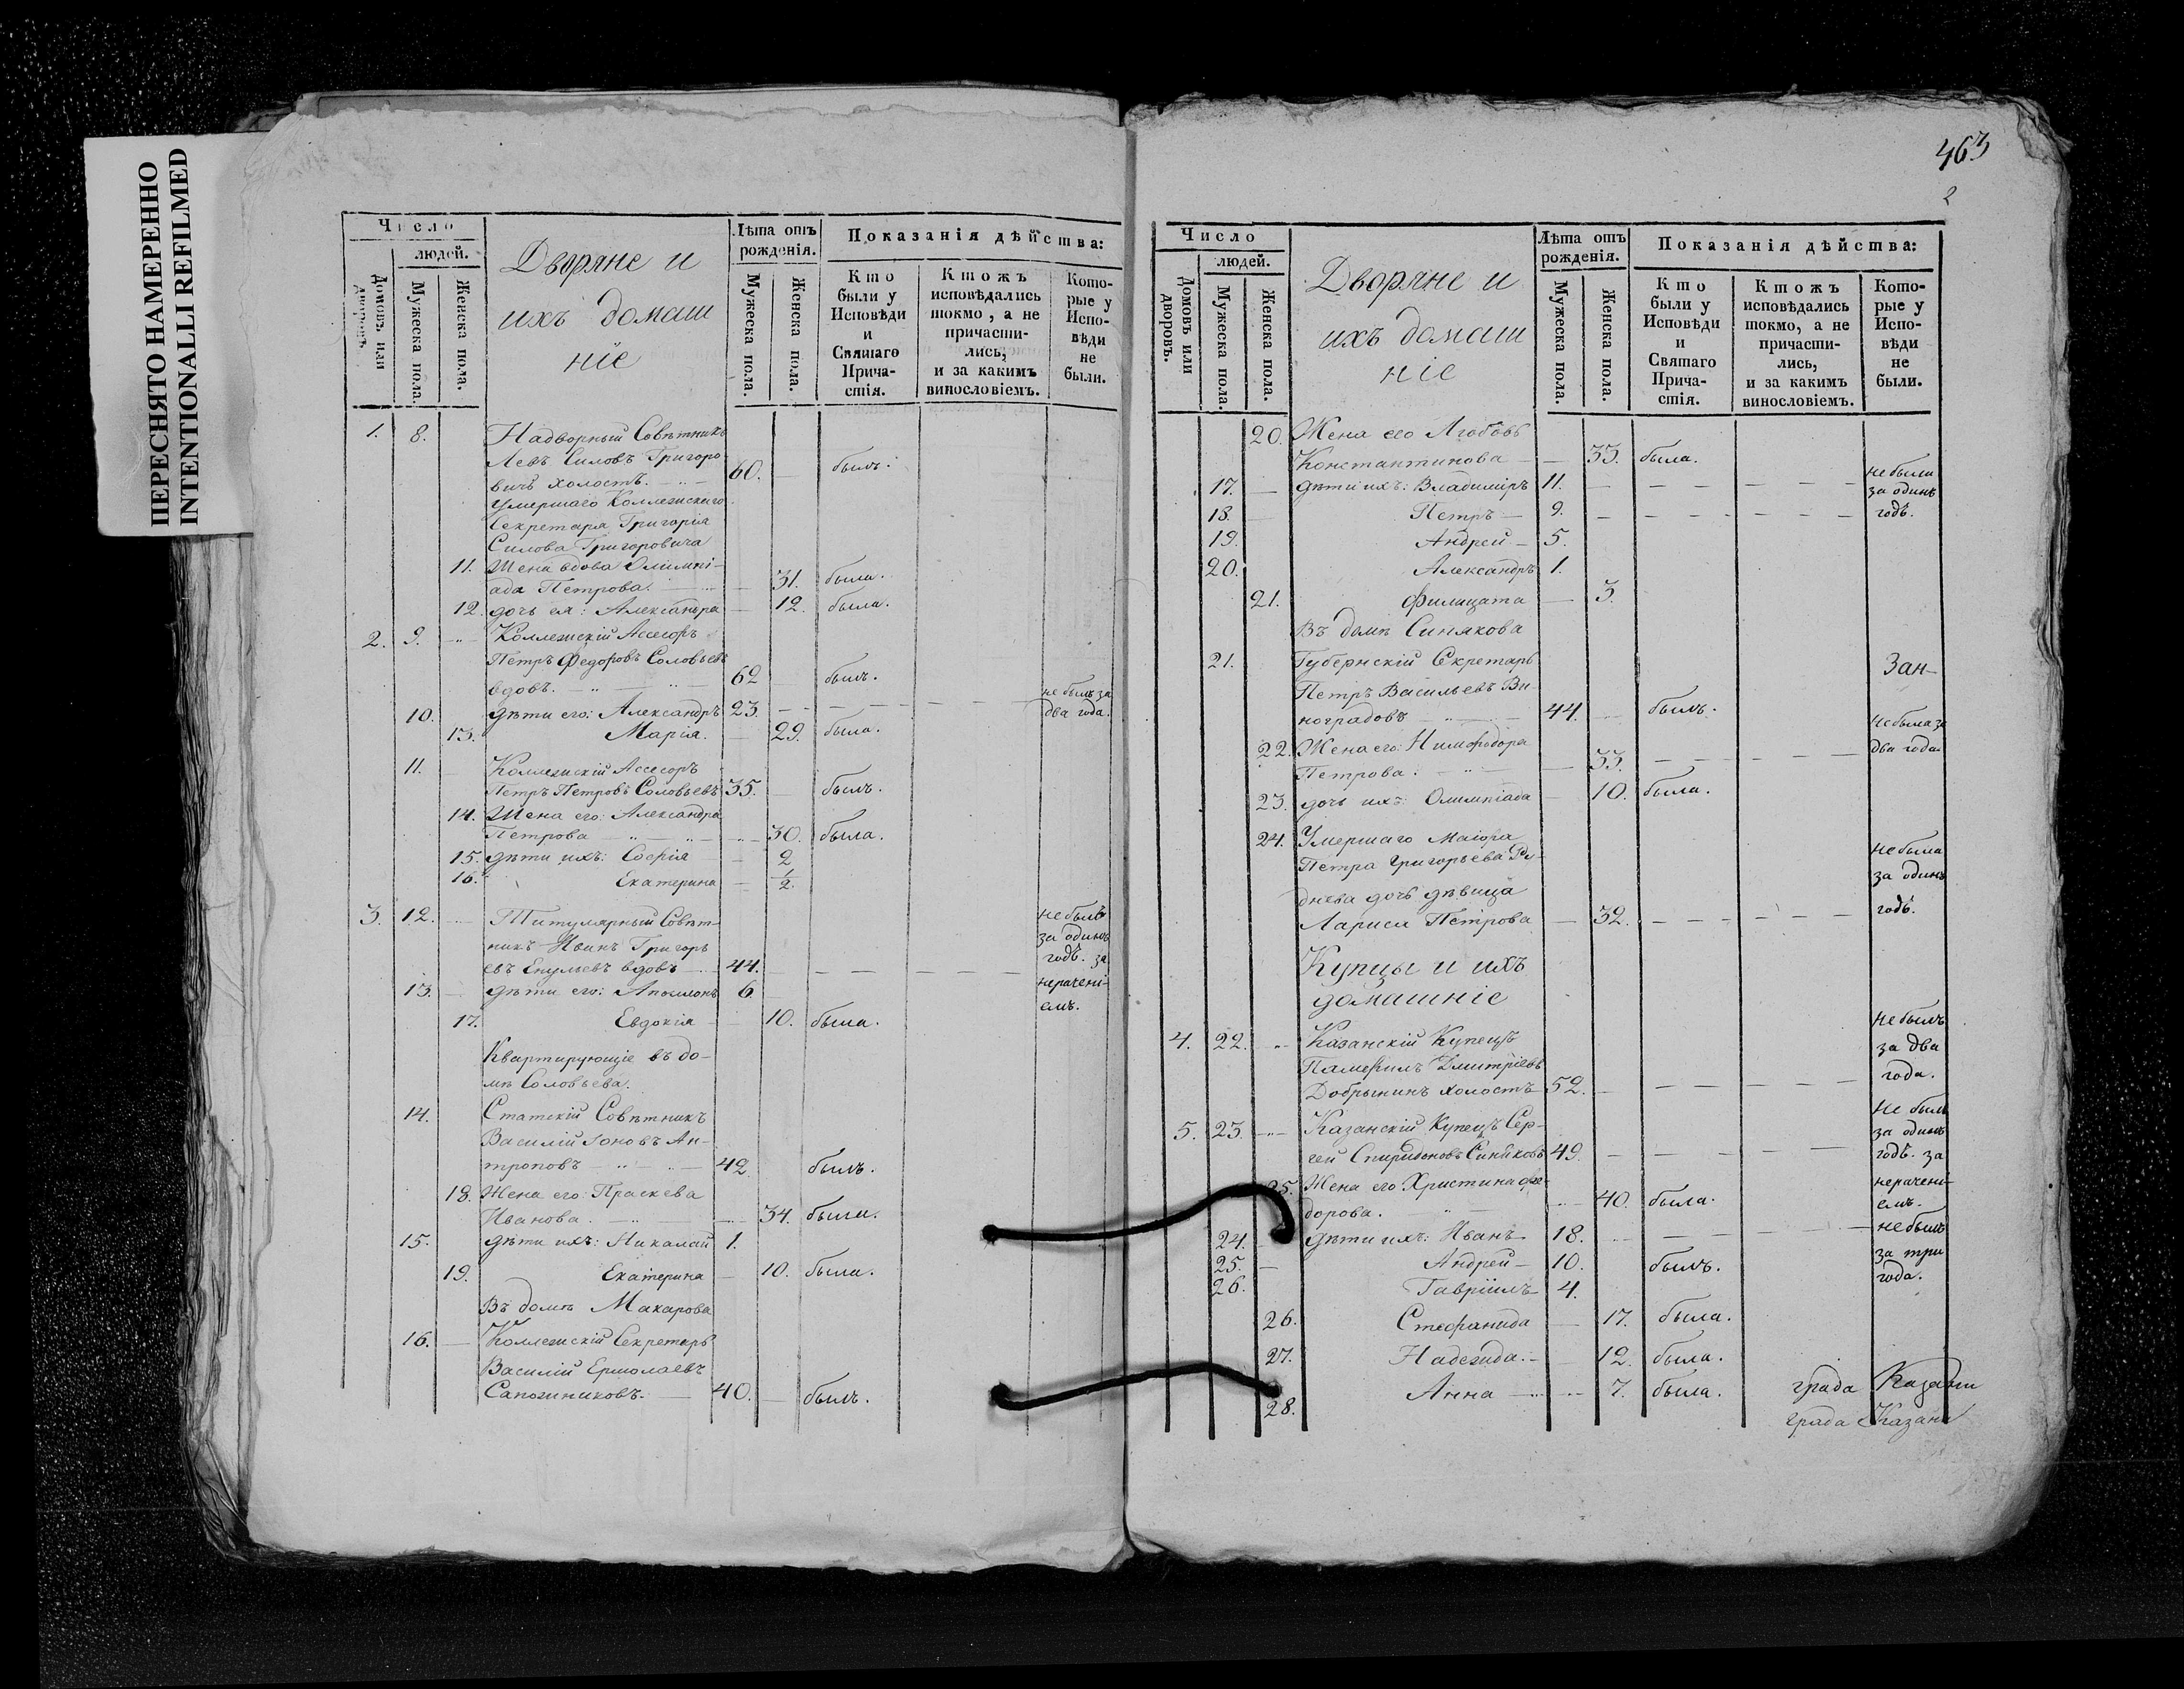 ПЕРЕСНЯТО НАМЕРЕННО
INTENTIONALLI REFILMED
Число
людей.
Домовъ или дворовъ.
Мужеска пола.
Женска пола.
Дворяне и
ихъ домаш
ніе
Лѣта отъ рожденія.
Мужеска пола.
Женска пола.
Показанія дѣйства:
Кто были у Исповѣди и Святаго Прича- стія.
Ктожъ исповѣдались токмо, а не причасти- лись, и за какимъ винословіемъ.
Кото- рые у Испо- вѣди не были.
1. 8. Надворный Совѣтникъ
Левъ Силовъ Григоро
вичъ холостъ. 60. былъ.
Умершаго Коллежскаго
Секретаря Григорія
Силова Григоровича
11. Жена вдова Олимпі-
ада Петрова. 31. была.
12. дочь ея: Александра 12. была.
2. 9. Коллежскій Ассесоръ
Петръ Федоровъ Соловьевъ
вдовъ. 62 былъ.
10. дѣти его: Александръ 23. не былъ за два года.
13. Марія. 29. была.
11. Коллежскій Ассесоръ
Петръ Петровъ Соловьевъ 35. былъ.
14. Жена его: Александра
Петрова 30. была.
15. дѣти ихъ: Софія 2
16. Екатерина 1/2.
3. 12. Титулярный Совѣт-
никъ Иванъ Григорь
евъ вдовъ 44. не былъ за одинъ годъ. за нерачені- емъ.
13. дѣти его: Аполлонъ 6.
17. Евдокія 10. была.
Квартирующіе въ до-
мѣ Соловьева.
14. Статскій Совѣтникъ
Василій Іоновъ Ан-
троповъ 42. былъ.
18. Жена его: Праскева
Иванова. 34. была.
15. дѣти ихъ: Николай 1.
19. Екатерина 10. была.
Въ домѣ Макарова
16. Коллежскій Секретарь
Василій Ермолаевъ
Сапожниковъ. 40. былъ.
463
2
Число
людей.
Домовъ или дворовъ.
Мужеска пола.
Женска пола.
Дворяне и
ихъ домаш
ніе
Лѣта отъ рожденія.
Мужеска пола.
Женска пола.
Показанія дѣйства:
Кто были у Исповѣди и Святаго Прича- стія.
Ктожъ исповѣдались токмо, а не причасти- лись, и за какимъ винословіемъ.
Кото- рые у Испо- вѣди не были.
20. Жена его Любовь
Константинова 33. была.
17. дѣти ихъ: Владиміръ 11. не были за одинъ годъ.
18. Петръ 9.
19. Андрей 5.
20. Александръ 1.
21. Филицата 3.
Въ домѣ Синякова
21. Губернскій Секретарь
Петръ Васильевъ Ви-
ноградовъ 44. былъ.
Зан-
22. Жена его: Нимфодора
Петрова. 33. не была за два года.
23. дочь ихъ: Олимпіада 10. была.
24. Умершаго Маіора
Петра Григорьева
днева дочь дѣвица
Лариса Петрова 32. не была за одинъ годъ.
Купцы и ихъ
домашніе
4. 22. Казанскій Купецъ
Памфилъ Дмитріевъ
Добрынинъ холостъ 52. не былъ за два года.
5. 23. Казанскій Купецъ Сер-
гей Спиридоновъ Синяковъ 49. не былъ за одинъ годъ. за нерачені- емъ.
25. Жена его Христина Фе-
дорова. 40. была.
24. дѣти ихъ: Иванъ 18. не былъ за три года.
25. Андрей 10. былъ.
26. Гавріилъ 4.
26. Стефанида 17. была.
27. Надежда. 12. была.
28. Анна 7. была.
града Казани
града Казани